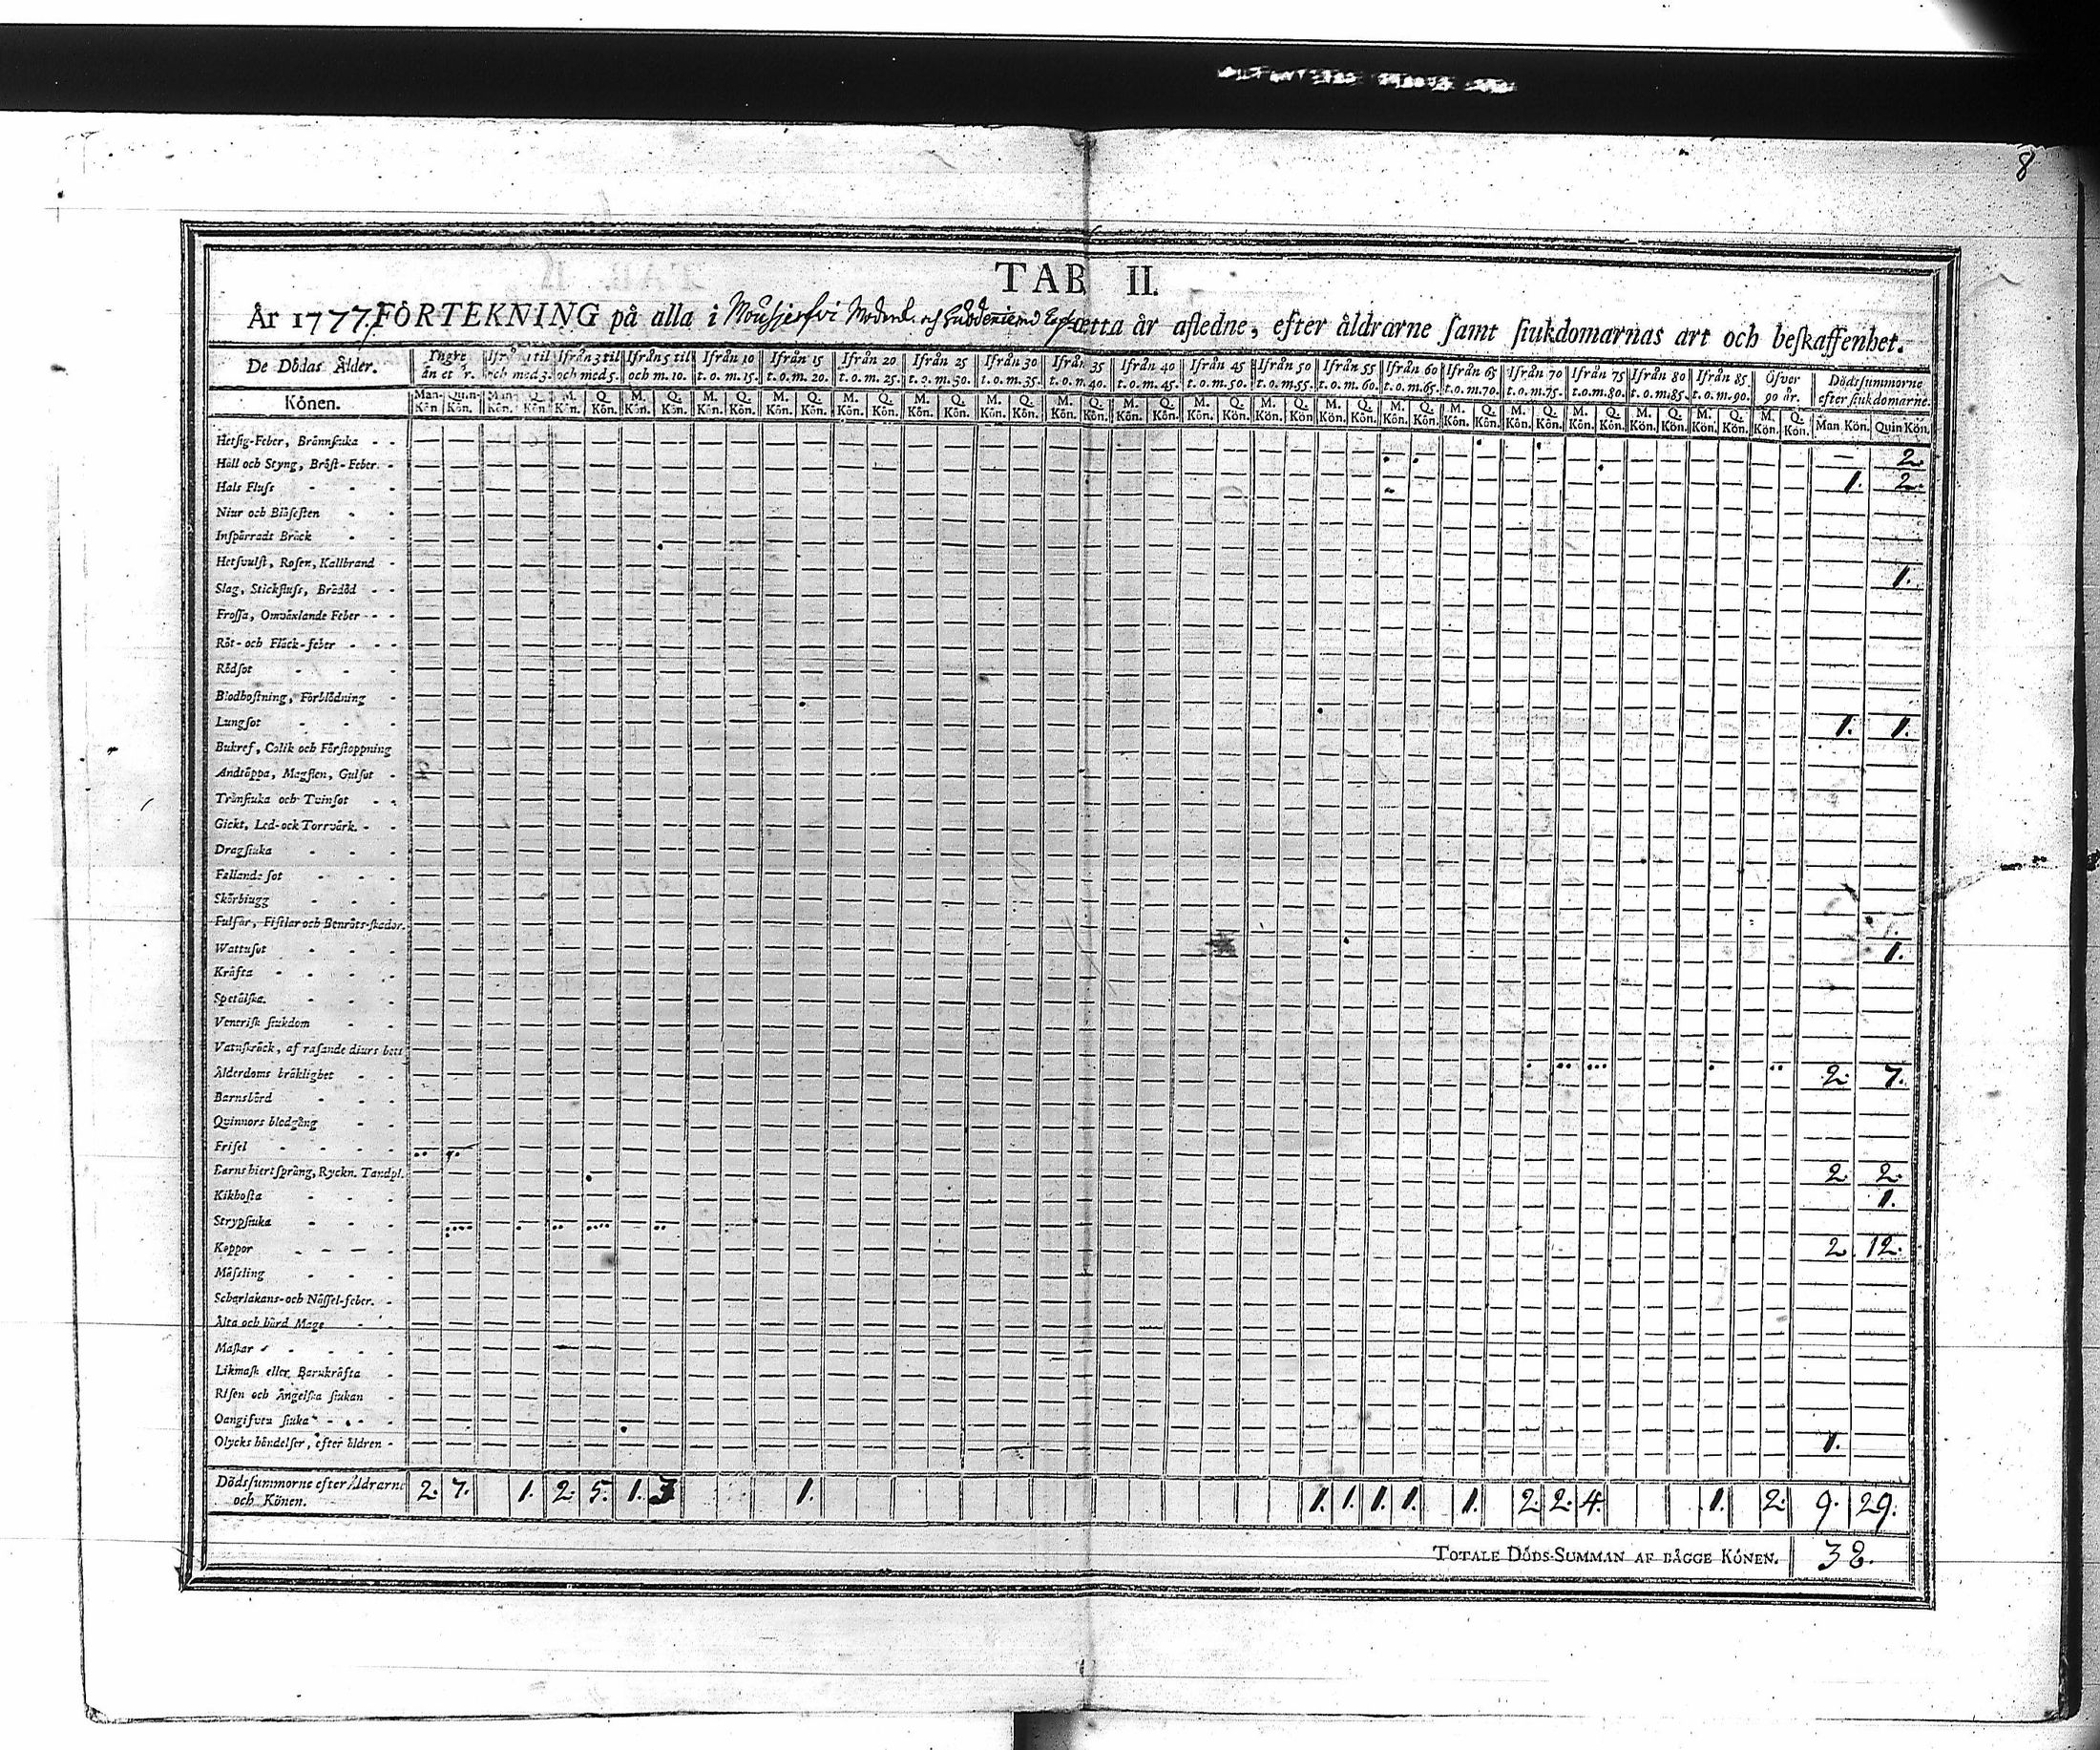 8
TAB II.
År 1777. FÖRTEKNING på alla i Moderk. och detta år afledne, efter åldrarne samt siukdomarnas art och beskaffenhet.
De Dödas Ålder. Yngre än et år. Ifrån 1 til och med 3. Ifrån 3 til och med 5. Ifrån 5 til och m. 10. Ifrån 10 t. o. m. 15. Ifrån 15 t. o. m. 20. Ifrån 20 t. o. m. 25. Ifrån 25 t. o. m. 30. Ifrån 30 t. o. m. 35. Ifrån 35 t. o. m. 40. Ifrån 40 t. o. m. 45. Ifrån 45 t. o. m. 50. Ifrån 50 t. o. m. 55. Ifrån 55 t. o. m. 60. Ifrån 60 t. o. m. 65. Ifrån 65 t. o. m. 70. Ifrån 70 t. o. m. 75. Ifrån 75 t. o. m. 80. Ifrån 80 t. o. m. 85. Ifrån 85 t. o. m. 90. Öfver 90 år. Dödssummorne efter siukdomarne.
Könen. Man-Kön Quin-Kön. Man-Kön Q. Kön. M. Kön. Q. Kön. M. Kön. Q. Kön. M. Kön. Q. Kön. M. Kön. Q. Kön. M. Kön. Q. Kön. M. Kön. Q. Kön. M. Kön. Q. Kön. M. Kön. Q. Kön. M. Kön. Q. Kön. M. Kön. Q. Kön. M. Kön. Q. Kön. M. Kön. Q. Kön. M. Kön. Q. Kön. M. Kön. Q. Kön. M. Kön. Q. Kön. M. Kön. Q. Kön. M. Kön. Q. Kön. M. Kön. Q. Kön. M. Kön. Q. Kön. Man Kön. Quin Kön.
Hetsig-Feber, Brännsiuka - - 2
Håll och Styng, Bröst-Feber. - 1. 2.
Hals Fluss - - -
Niur och Blåsesten - -
Inspärradt Bråck - -
Hetsvulst, Rosen, Kallbrand - 1.
Slag, Stickfluss, Brådöd - -
Frossa, Omväxlande Feber - - -
Röt- och Fläck-feber - - -
Rödsot - - -
Blodhostning, Förblödning -
Lungsot - - - 1. 1.
Bukref, Colik och Förstoppning
Andtäppa, Magsten, Gulsot -
Trånsiuka och Tvinsot - -
Gickt, Led- ock Torrvärk. - -
Dragsiuka - - -
Fallande sot - - -
Skörbiugg - - -
Fulsår, Fistlar och Benröts-skador.
Wattusot - - - 1.
Kräfta - - - -
Spetälska. - - -
Venerisk siukdom - -
Vatuskräck, af rasande diurs bett
Ålderdoms bräklighet - - 2. 7.
Barnsbörd - - -
Quinnors blodgång - -
Frisel - - - -
Barns hiertsprång, Ryckn. Tandpl. 2. 2.
Kikhosta - - - 1.
Strypsiuka - - -
Koppor - - - - 2. 12.
Mässling - - -
Scharlakans- och Nässel-feber. -
Älta och hård Mage - -
Maskar - - - - -
Likmask eller Barnkräfta -
Risen och Ångelska siukan -
Oangifven siuka - - - -
Olycks händelser, efter åldren - 1.
Dödssummorne efter Åldrarne och Könen. 2. 7. 1. 2. 5. 1. 3 1. 1. 1. 1. 1. 1. 2. 2. 4. 1. 2. 9. 29.
TOTALE DÖDS-SUMMAN AF BÅGGE KÖNEN. 38.